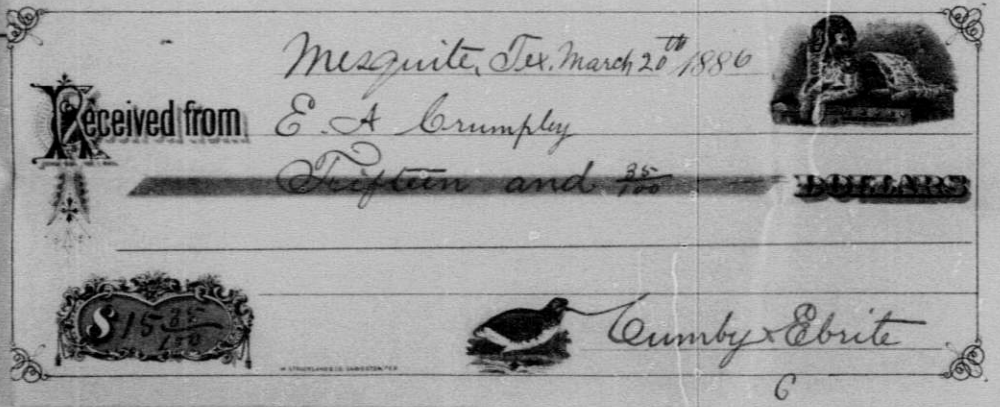 Mesquite, Tex. March 20th 1886
Received from E. A Crumpley
Fifteen and 35/100 DOLLARS
$15 35/100
Cumby & Ebrite
6